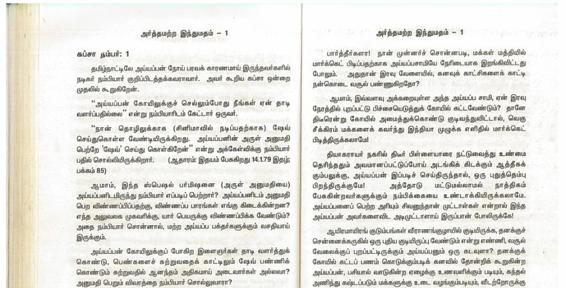 அர்த்தமற்ற இந்துமதம் - 1
கப்சா நம்பர்: 1
தமிழ்நாட்டிலே அய்யப்பன் நோய் பரவக் காரணமாய் இருந்தவர்களில்
நடிகர் நம்பியார் குறிப்பிடத்தக்கவராவார். அவர் கூறிய கப்சா ஒன்றை
முதலில் கூறுகிறேன்.
"அய்யப்பன் கோயிலுக்குச் செல்லும்போது நீங்கள் ஏன் தாடி
வளர்ப்பதில்லை" என்று நம்பியாரிடம் கேட்டார் ஒருவர்.
"நான் தொழிலுக்காக (சினிமாவில் நடிப்பதற்காக) ஷேவ்
செய்துகொள்ள வேண்டியிருக்கிறது. அய்யப்பனின் அருள் அனுமதி
பெற்றே 'ஷேவ்' செய்து வருகிறேன்" என்று அக்கேள்விக்கு நம்பியார்
பதில் சொல்லியிருக்கிறார். (ஆதாரம்: இதயம் பேசுகிறது 14.1.79 இதழ்;
பக்கம் 85)
ஆமாம், இந்த ஸ்பெஷல் பர்மிஷனை (அருள் அனுமதியை)
அய்யப்பனிடமிருந்து நம்பியார் எப்படிப் பெற்றார்? அய்யப்பனிடம் அனுமதி
பெற விண்ணப்பிப்பதற்கு, விண்ணப்ப பாரங்கள் எங்கு கிடைக்கின்றன?
எந்த அலுவலக முகவரிக்கு, யார் பெயருக்கு விண்ணப்பிக்க வேண்டும்?
அதை நம்பியார் சொன்னால், மற்ற அய்யப்ப பக்தர்களுக்கும் வசதியாய்
இருக்கும்.
அய்யப்பன் கோயிலுக்குப் போகிற இளைஞர்கள் தாடி வளர்த்துக்
கொண்டு, பெண்களைச் சுற்றுவதைக் காட்டிலும் ஷேவ் பண்ணிக்
கொண்டு சுற்றுவதில் ஆனந்தம் அதிகமாய் அடைவார்கள் அல்லவா?
அனுமதி பெறும் விவரத்தை நம்பியார் சொல்லுவாரா?
அர்த்தமற்ற இந்துமதம் - 1
பார்த்தீர்களா! நான் முன்னர்ச் சொன்னபடி, மக்கள் மத்தியில்
மார்க்கெட் பிடிப்பதற்காக அய்யப்பசாமியே நேரிடையாக இறங்கிவிட்டது
போலும். அதுதான் இரவு வேளையில், கனவுக் காட்சிகளைக் காட்டி
நன்கொடை வசூல் பண்ணுகிறதோ?
ஆமாம், இவ்வளவு அக்கறையுள்ள அந்த அய்யப்ப சாமி, ஏன் இரவு
நேரத்தில் புறப்பட்டு பிச்சையெடுத்துக் கோயில் கட்டவேண்டும்? தானே
திடீரென்று கோயில் அமைத்துக்கொண்டு குடிவந்துவிட்டால், வெகு
சீக்கிரம் மக்களைக் கவர்ந்து இந்தியா முழுக்க எளிதில் மார்க்கெட்
பிடித்திருக்கலாமே!
தியாகராயர் நகரில் திடீர் பிள்ளையாரை நட்டுவைத்து உண்மை
தெரிந்ததும் அவமானப்பட்டுப்போய் அடங்கிக் கிடக்கும் ஆத்தீகக்
கும்பலுக்கு, அய்யப்பன் இப்படிச் செய்திருந்தால், ஒரு புதுத்தெம்பு
பிறந்திருக்குமே! அத்தோடு மட்டுமல்லாமல் நாத்திகம்
பேசுகின்றவர்களுக்கும் நம்பிக்கையை உண்டாக்கியிருக்கலாமே.
அய்யப்பனைப் பெற்ற அரியும் சிவனுந்தான் முட்டாள்கள் என்றால் இந்த
அய்யப்பன் அவர்களைவிட அடிமுட்டாளாய் இருப்பான் போலிருக்கே!
ஆயிரமாயிரம் குடும்பங்கள் வீராணங்குழாயில் குடியிருக்க, தனக்குச்
சென்னைக்கருகில் ஒரு புதிய குடியிருப்பு வேண்டும் என்று எண்ணி, வசூல்
வேலைக்குப் புறப்பட்டிருக்கும் அய்யப்பனும் ஒரு கடவுளா? தனக்குக்
கோயில் கட்டப் பணம் கொடுக்கும்படிக் கனவில் தோன்றிக் கூறுகின்ற
அய்யப்பன், பசியால் வாடுகின்ற ஏழைக்கு உணவளிக்கும் படியும், கந்தல்
அணிந்து கஷ்டப்படும் மக்களுக்கு உடை வழங்கும்படியும், வீடற்றோருக்கு